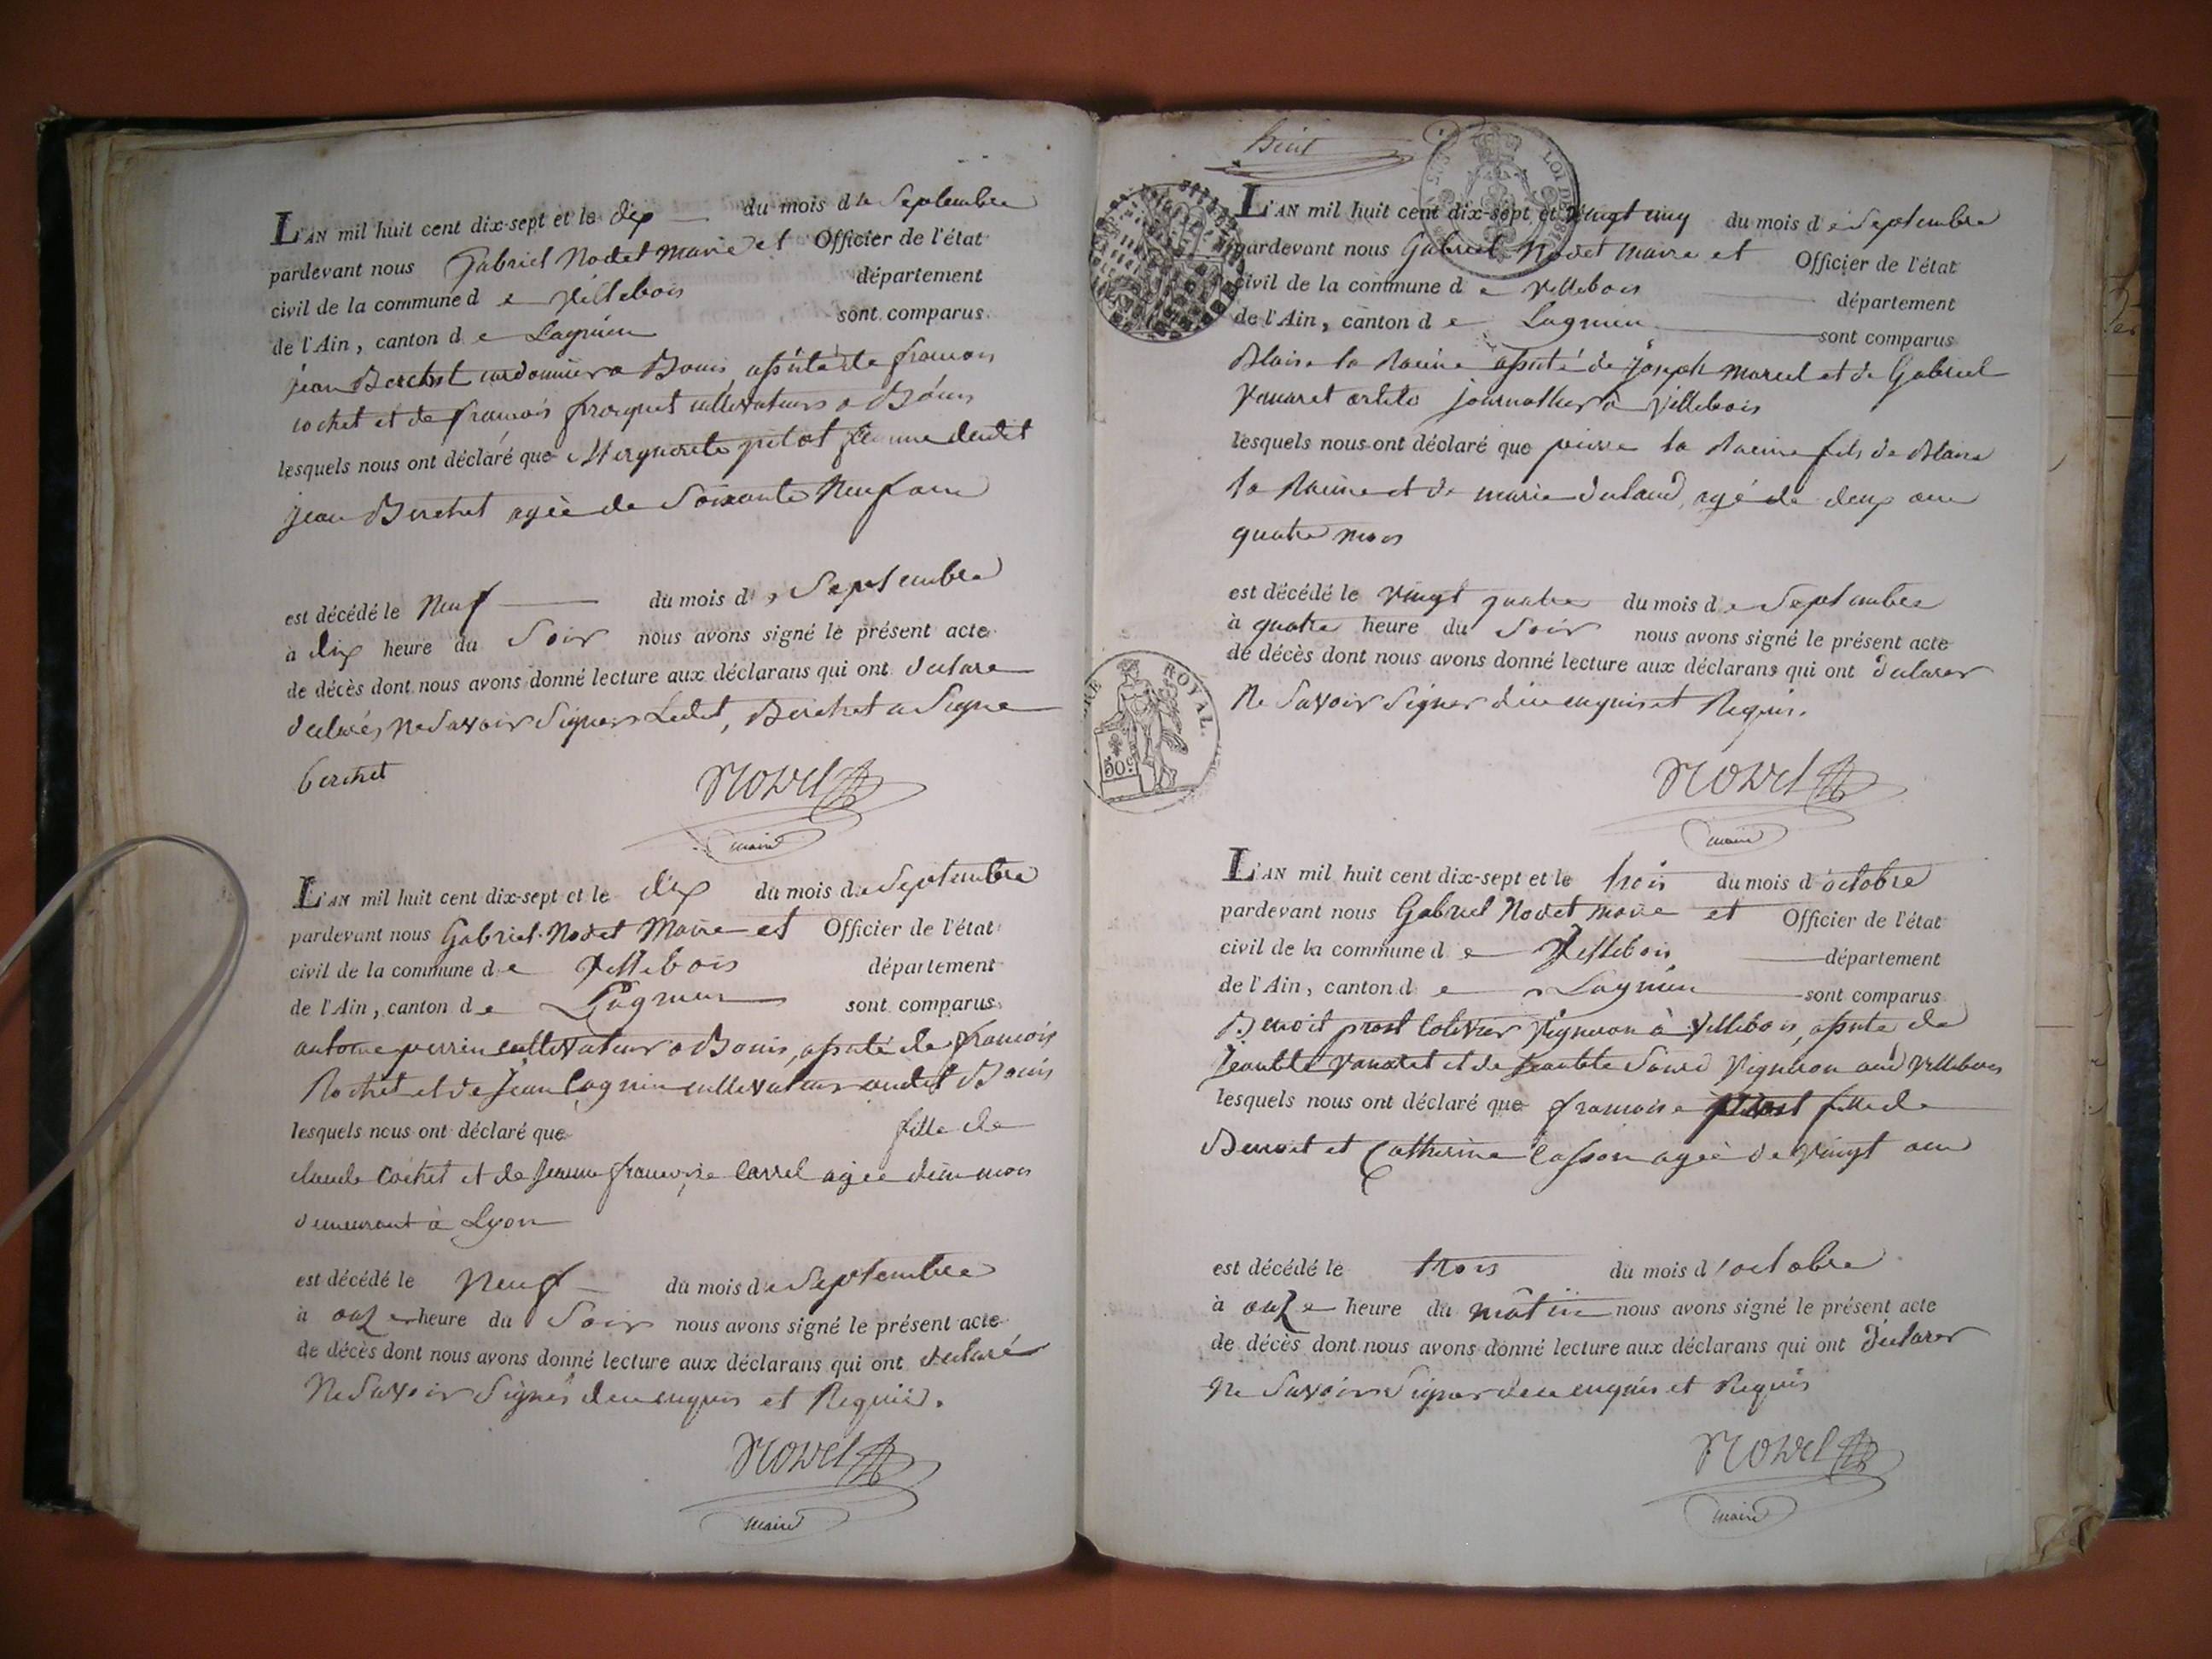 L'AN mil huit cent dix-sept et le dix du mois de Septembre
pardevant nous Gabriel Nodet Maire et Officier de l'état
civil de la commune de Villebois département
de l'Ain, canton de Lagnieu sont comparus
jean Berchet cordonnier a Bouis, assisté de francois
cochet et de francois froquet cultivateurs a Bouis
lesquels nous ont déclaré que Merguerite pitot femme dudit
jean Berchet agée de Soixante Neuf ans
est décédé le Neuf du mois de Septembre
à dix heure du Soir nous avons signé le présent acte
de décès dont nous avons donné lecture aux déclarans qui ont declare
declarés Ne Savoir Signer Ledit, Berchet a Signe
berchet
Nodet
maire
L'AN mil huit cent dix-sept et le dix du mois de Septembre
pardevant nous Gabriel Nodet Maire et Officier de l'état
civil de la commune de Villebois département
de l'Ain, canton de Lagnieu sont comparus
antoine perrin cultivateur a Bouis, assisté de francois
Rochet et de Jean Cagnin cultivateurs audit Bouis
lesquels nous ont déclaré que fille de
claude Cochet et de Jeanne francoise Carrel agée d'un mois
demeurant à Lyon
est décédé le Neuf du mois de Septembre
à onze heure du Soir nous avons signé le présent acte
de décès dont nous avons donné lecture aux déclarans qui ont declaré
Ne Savoir Signer de ce enquis et Requis.
Nodet
maire
huit
LOI DE
L'AN mil huit cent dix-sept et vingt cinq du mois de Septembre
pardevant nous Gabriel Nodet Maire et Officier de l'état
civil de la commune de Villebois département
de l'Ain, canton de Lagnieu sont comparus
Blaise la Racine assisté de Joseph Marcel et de Gabriel
Vanaret journallier à Villebois
lesquels nous ont déclaré que pierre la Racine fils de Blaise
la Racine et de marie dulaud, agé de deux ans
quatre mois
est décédé le Vingt quatre du mois de Septembre
à quatre heure du Soir nous avons signé le présent acte
de décès dont nous avons donné lecture aux déclarans qui ont declarer
Ne Savoir Signer de ce enquis et Requis.
ROYAL.
50c
Nodet
maire
L'AN mil huit cent dix-sept et le trois du mois d'octobre
pardevant nous Gabriel Nodet Maire et Officier de l'état
civil de la commune de Villebois département
de l'Ain, canton de Lagnieu sont comparus
Benoit prost Vigneron à Villebois, assisté de
Jean Vanaret et de Vigneron aud Villebois
lesquels nous ont déclaré que francoise prost fille de
Benoit et Catherine Casson agée de Vingt ans
est décédé le trois du mois d'octobre
à onze heure du mâtin nous avons signé le présent acte
de décès dont nous avons donné lecture aux déclarans qui ont declarer
Ne Savoir Signer de ce enquis et Requis
Nodet
maire